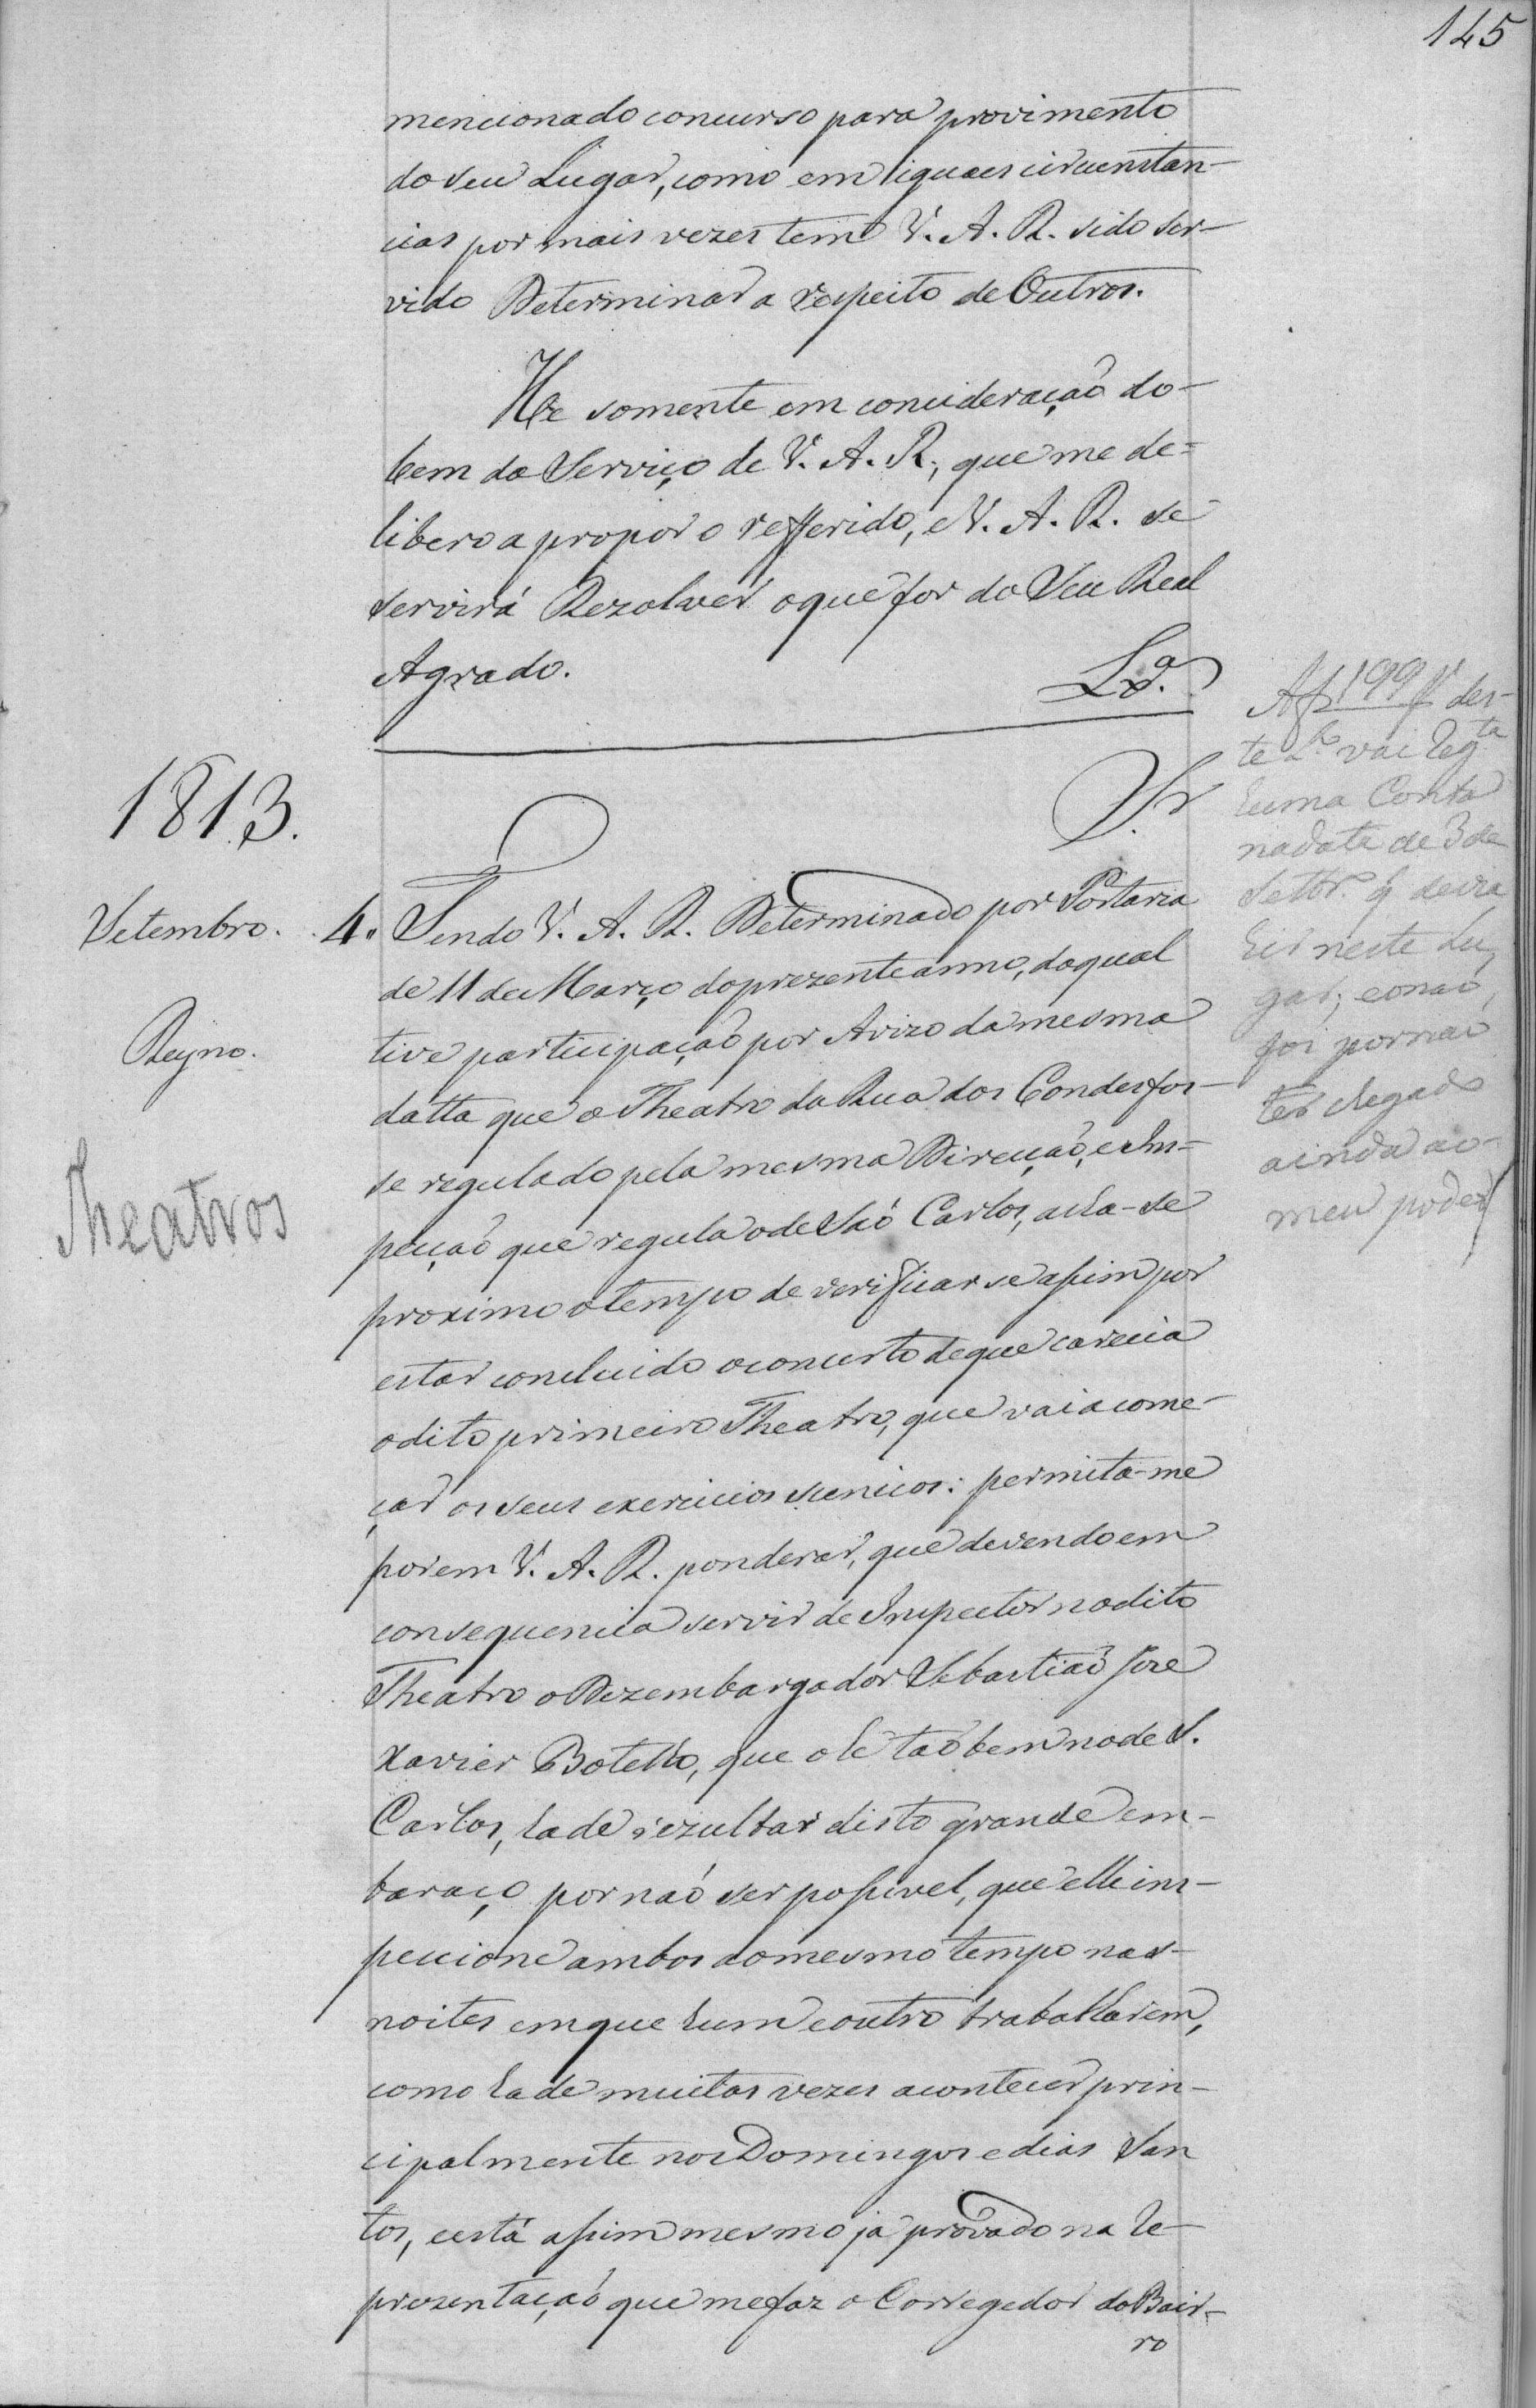 145
mencionado concurso para provimento
do seu Lugar, como em iguaes circunstan-
cias por mais vezes tem V. A. R. sido ser-
vido Determinar a respeito de Outros.
He somente em concideração do-
bem do Serviço de V. A. R., que me de=
libero a propor o refferido, e V. A. R. se
servirá Rezolver o que for do Seu Real
Agrado.
Lx.ª
Sr
1813.
Setembro. 4. Tendo V. A. R. Determinado por Portaria
de 11 de Março do prezente anno, da qual
Reyno.
tive participação por Avizo da mesma
datta que o Theatro da Rua dos Condes fos-
se regulado pela mesma Direcção, e Ins-
Theatros
pecção que regula o de São Carlos, acha-se
proximo o tempo de verificar se assim por
estar concluido o concerto de que carecia
o dito primeiro Theatro, que vai a come-
çar os seus exercicios scenicos: permita-me
porem V. A. R. ponderar, que devendo em
consequencia servir de Inspector no dito
Theatro o Dezembargador Sebastião Joze
Xavier Botelho, que o he tão bem no de S.
Carlos, ha de rezultar disto grande em-
baraço por não ser possivel, que elle ins-
peccione ambos ao mesmo tempo nas-
noites em que hum e outro trabalharem,
como ha de muitas vezes acontecer prin-
cipalmente nos Domingos e dias San
tos, e está assim mesmo já provado na Re-
prezentação que me faz o Corregedor do Bair-
ro
Af 199 V des-
te L.º vai reg.ta
huma Conta
na data de 3 de
Settbr.º q devia
hir neste Lu-
gar, e o não
foi por não
ter chegado
ainda ao-
meu poder